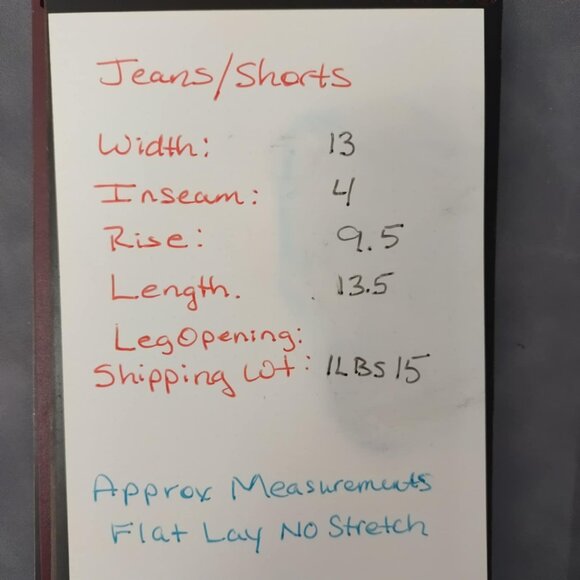 Jeans/Shorts
Width: 13
Inseam: 4
Rise: 9.5
Length. 13.5
Leg Opening:
Shipping Wt: 1LBS 15
Approx Measurements
Flat Lay No Stretch